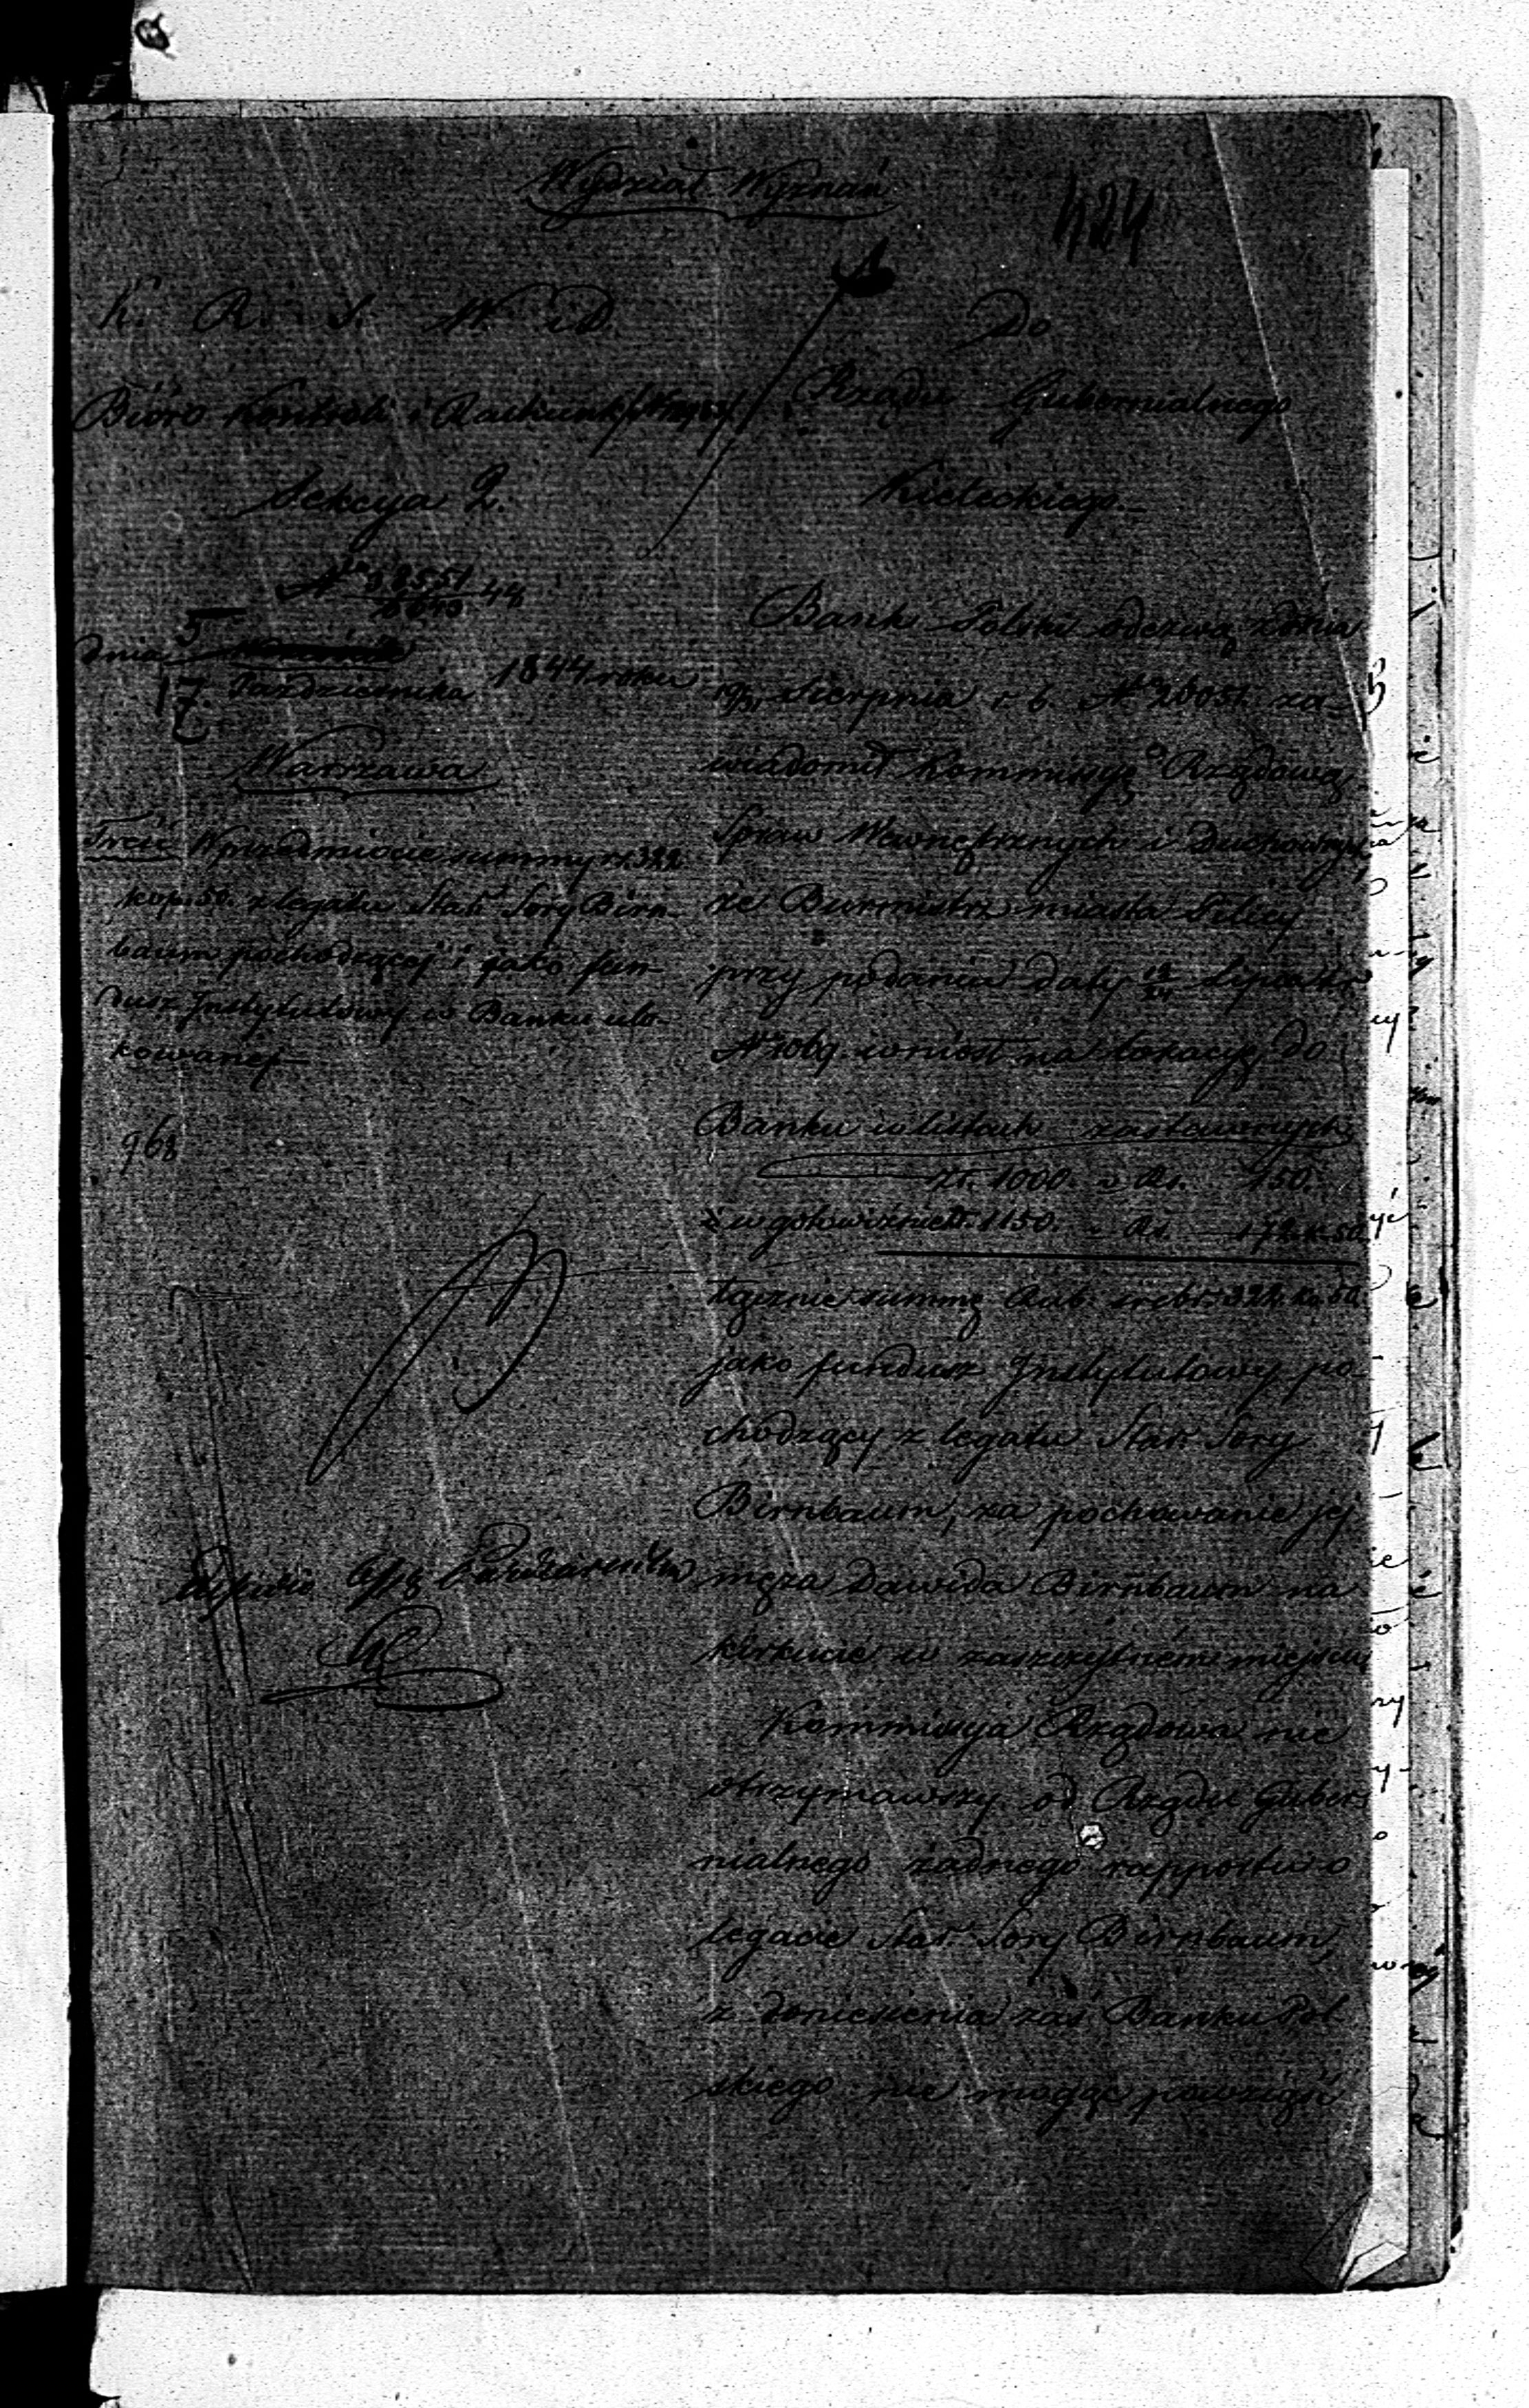 Wydział Wyznań
424
K. R. S. W. i D.
Biuro Kontroli i Rachunk
Sekcya 2.
N 38551 44
dnia 5
17 Października 1844 roku
Warszawa
Treść W przedmiocie summy rs. 322
kop. 50. z legatu Star. Sory Birn-
baum pochodzącej i jako fun-
dusz Instytutowy w Banku ulo-
kowanej
968
Do
Rządu Gubernialnego
Kieleckiego
Bank Polski odezwą z dnia
19/31 Sierpnia r. b. N 26051. za-
wiadomił Kommissyę Rządową
Spraw Wewnętrznych i Duchownych
że Burmistrz miasta Pilicy
przy podaniu daty 12/24 Lipca
N 1069. wniósł na lokacyę do
Banku w listach zastawnych
zł. 1000. Rs. 150.
i w gotowiźnie zł. 1150. Rs. 172 k. 50
łącznie summę Rub. srebr. 322. k. 50
jako fundusz Instytutowy po-
chodzący z legatu Star. Sory
Birnbaum, za pochowanie jej
męża Dawida Birnbaum na
kirkucie w zaszczytném miejscu
Kommissya Rządowa nie
otrzymawszy od Rządu Guber-
nialnego żadnego rapportu o
legacie Star. Sory Birnbaum,
z doniesienia zaś Banku Pol-
skiego nie mogąc powziąść